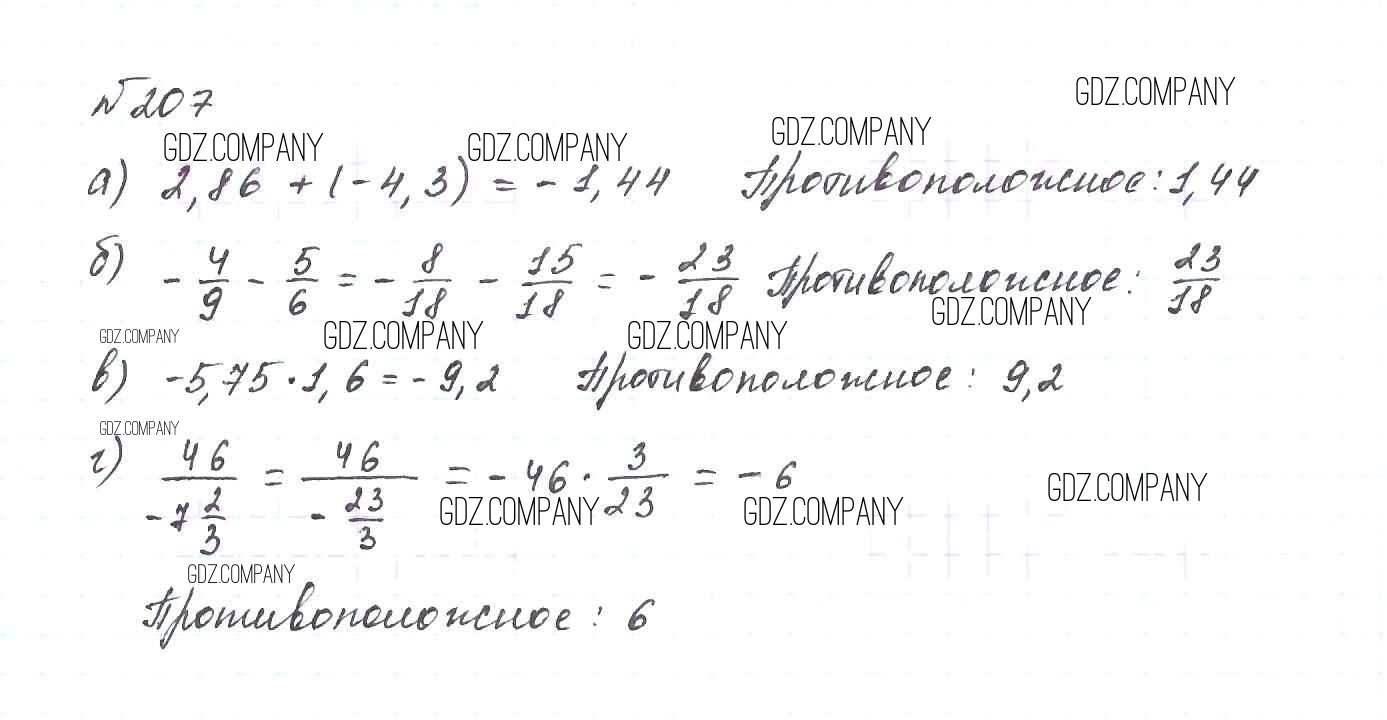 № 207
GDZ.COMPANY
GDZ.COMPANY GDZ.COMPANY GDZ.COMPANY
а) 2,86 + (-4,3) = -1,44 Противоположное: 1,44
б) -4/9 - 5/6 = -8/18 - 15/18 = -23/18 Противоположное: 23/18
GDZ.COMPANY
GDZ.COMPANY GDZ.COMPANY GDZ.COMPANY
в) -5,75 · 1,6 = -9,2 Противоположное: 9,2
GDZ.COMPANY
г) 46/(-7 2/3) = 46/(-23/3) = -46 · 3/23 = -6
GDZ.COMPANY GDZ.COMPANY GDZ.COMPANY
GDZ.COMPANY
Противоположное: 6